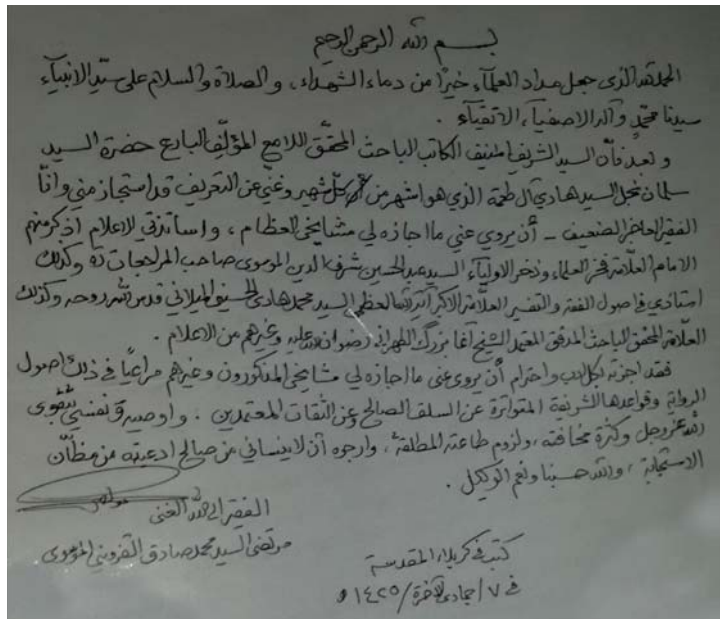 بسم الله الرحمن الرحيم
الحمد لله الذي جعل مداد العلمآء خيرًا من دماء الشهداء، والصلاة والسلام على سيّد الانبيآء
سيدنا محمّدٍ وآله الاصفيآء الاتقيآء .
وبعد فأن السيد الشريف المنيف الكاتب الباحث المحقق اللامع المؤلّف البارع حضرة السيد
سلمان نجل السيد هادي آل طعمة الذي هو اشهر من كلّ شهير وغنيّ عن التعريف قد استجاز مني وانا
الفقير العاجز الضعيف - أن يروي عني ما اجازه لي مشايخي العظام ، واساتذتي الاعلام اذكر منهم
الامام العلّامة فخر العلماء وذخر الاوليآء السيد عبد الحسين شرف الدين الموسوي صاحب المراجعات وكذلك
استاذي في اصول الفقه والتفسير العلّامة الاكبر آية الله العظمى السيد محمد هادي الحسيني الميلاني قدس الله روحه وكذلك
العلّامة المحقق الباحث المدقق المعتمد الشيخ آغا بزرگ الطهراني رضوان الله عليه وغيرهم من الاعلام .
فقد اجزته بكل ادب واحترام أن يروي عني ما اجازه لي مشايخي المذكورون وغيرهم مراعياً في ذلك اصول
الرواية وقواعدها الشريفة المتواترة عن السلف الصالح وعن الثقات المعتمدين . واوصيه ونفسي بتقوى
الله عز وجل وكثرة مخافته ، ولزوم طاعته المطلقة ، وارجوه أن لا ينساني من صالح ادعيته من مظآن
الاستجابة ، والله حسبنا ونعم الوكيل .
الفقير الى الله الغني
مرتضى السيد محمد صادق القزويني الموسوي
كتبت في كربلاء المقدسة
في ٧/جمادى الآخرة/١٤٢٥ ه